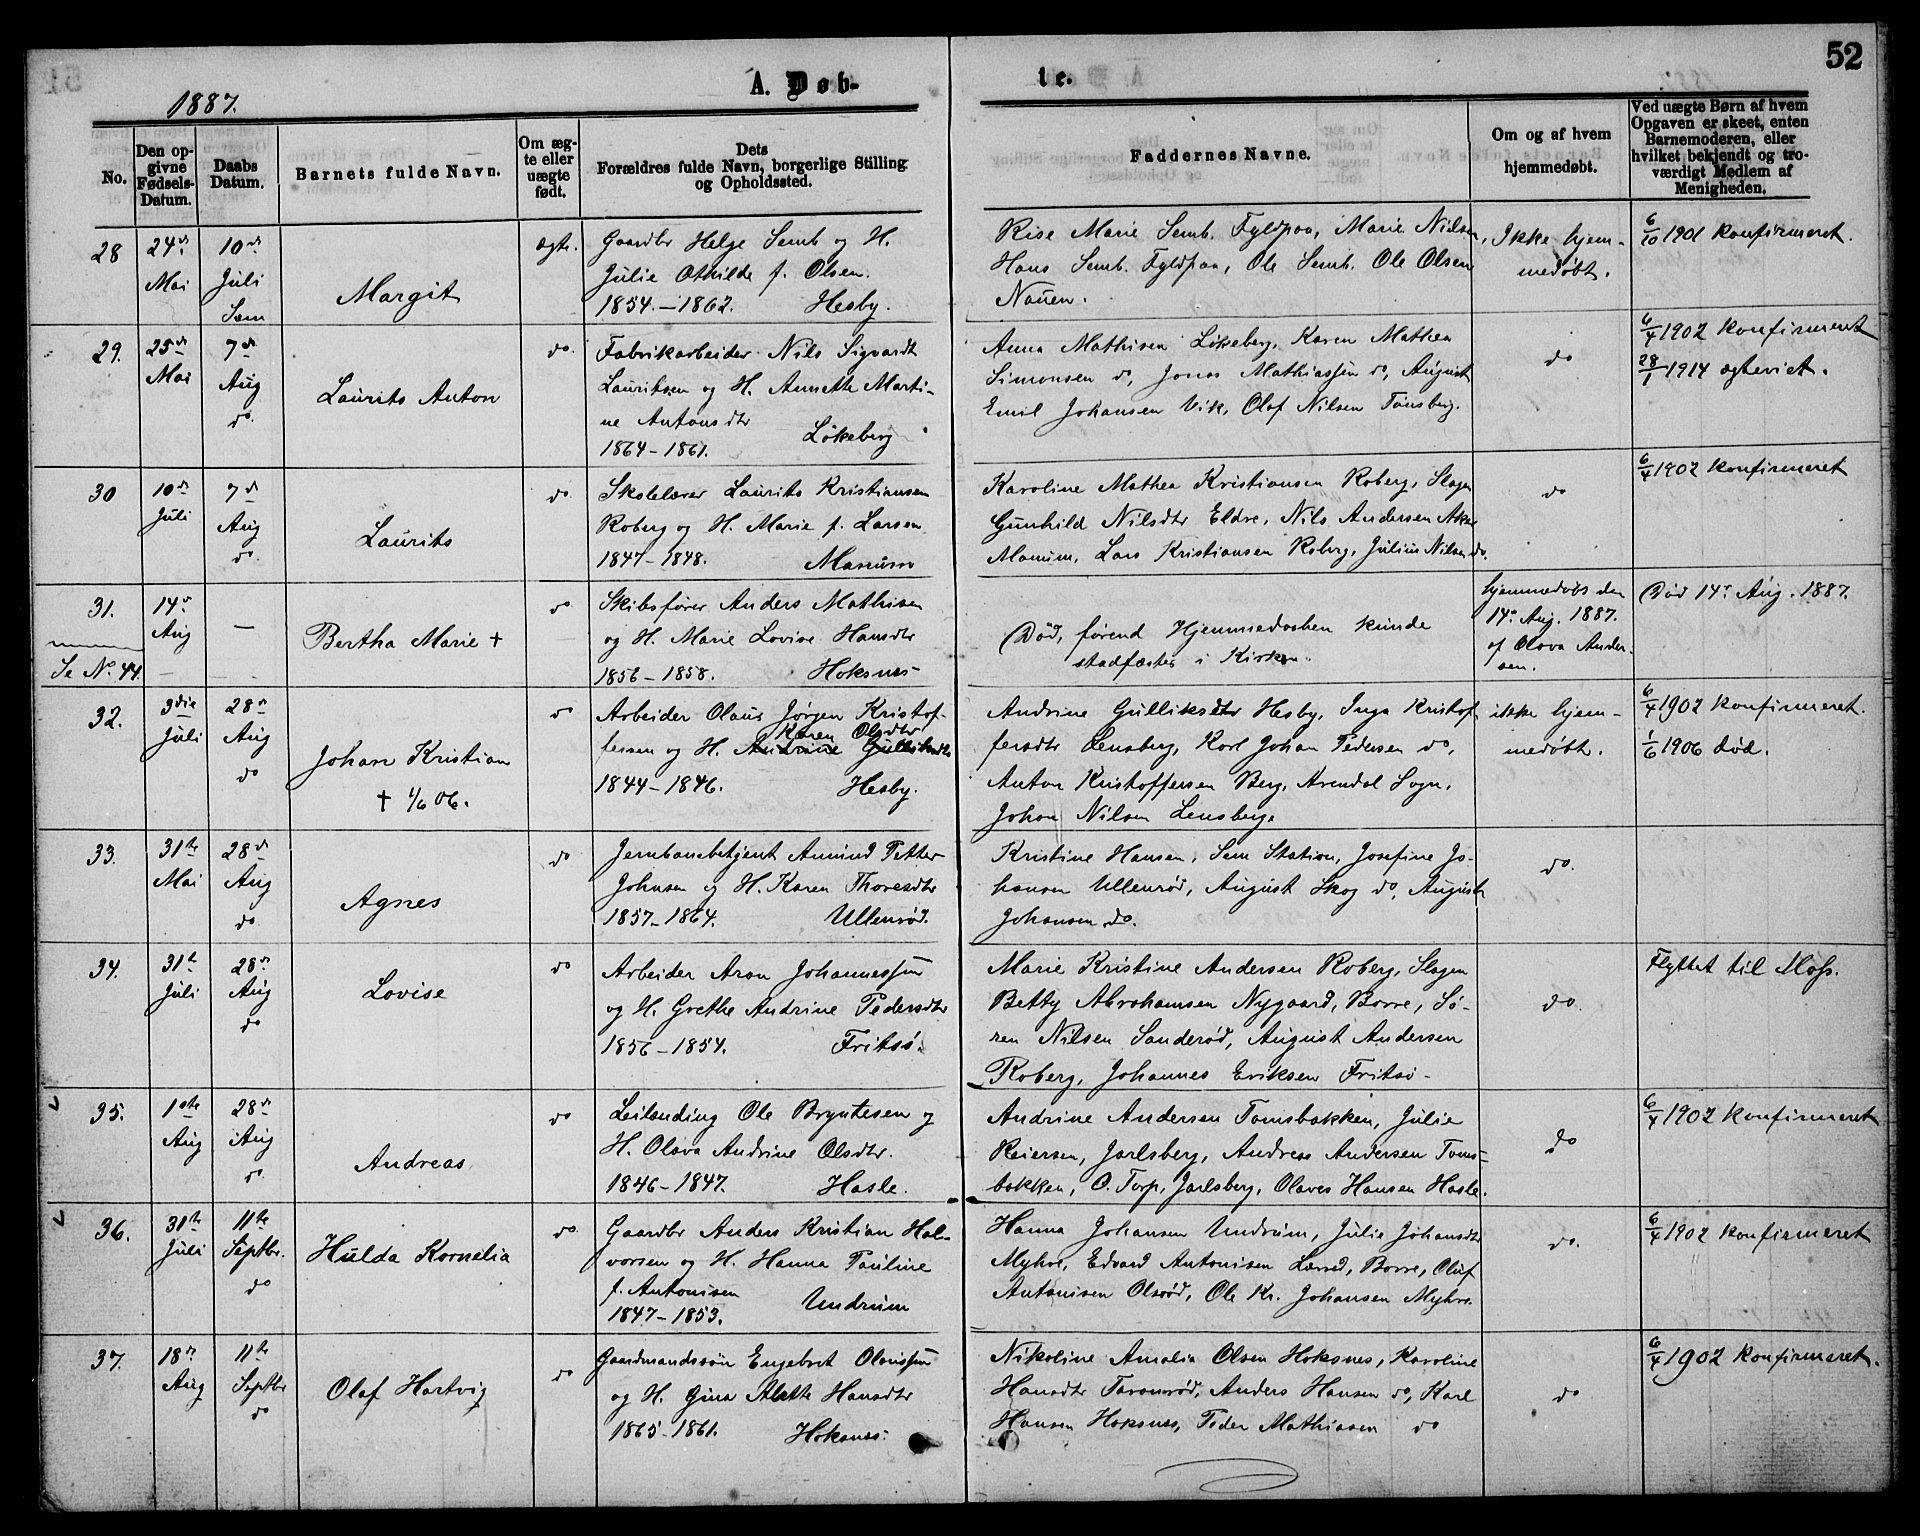 52
1887.
A. Døb-
te.
No.
Den op-
givne
Fødsels-
Datum.
Daabs
Datum.
Barnets fulde Navn.
Om æg-
te eller
uægte
født.
Dets
Forældres fulde Navn, borgerlige Stilling
og Opholdssted.
Faddernes Navne.
Om og af hvem
hjemmedøbt.
Ved uægte Børn af hvem
Opgaven er skeet, enten
Barnemoderen, eller
hvilket bekjendt og tro-
værdigt Medlem af
Menigheden.
28
24de
Mai
10de
Juli
Sem
Margit
ægte.
Gaardbr Helge Semb og H.
Julie Othilde f. Olsen.
1854.-1862. Hesby.
Rise Marie Semb. Fyldpaa, Marie Nilsen,
Hans Semb. Fyldpaa, Ole Semb. Ole Olsen
Nauen.
Ikke hjem-
medøbt.
6/10 1901 konfirmeret.
29.
25de
Mai
7de
Aug
do.
Laurits Anton
do.
Fabrikarbeider Nils Sigvardt
Lauritsen og H. Annette Marti-
ne Antonsdtr
1864-1861. Løkeberg
Anna Mathisen Løkeberg, Karen Mathea
Simonsen do, Jonas Mathiassen do, August
Emil Johansen Vik, Olaf Nilsen Tønsberg.
do
6/4 1902 konfirmeret
28/1 1914 ægteviet.
30
10de
Juli
7de
Aug
do.
Laurits
do.
Skolelærer Laurits Kristiansen
Roberg og H. Marie f. Larsen
1847-1848. Manum
Karoline Mathea Kristiansen Roberg, Slagen
Gunhild Nilsdtr Eldre, Nils Andersen Aker
Manum, Lars Kristiansen Roberg, Julius Nilsen do.
do
6/4 1902 konfirmeret
31.
Se No. 44.
14de
Aug
—
Bertha Marie +
do.
Skibsfører Anders Mathisen
og H. Marie Lovise Hansdtr
1856-1858. Hoksnes
Død, førend Hjemmedaaben kunde
stadfæstes i Kirken.
hjemmedøbt den
14de Aug. 1887.
af Olava Ander-
sen.
Død 14de Aug. 1887.
32.
3die
Juli
28de
Aug
do
Johan Kristian
+ 1/6 06.
do
Arbeider Olaus Jørgen Kristof-
Karen Olsdtr
fersen og H. Andrine Gulliksdtr
1844-1846. Hesby.
Andrine Gulliksdtr Hesby, Inga Kristof-
fersdtr Lensberg, Karl Johan Pedersen do,
Anton Kristoffersen Berg, Arendal Sogn,
Johan Nilsen Lensberg.
ikke hjem-
medøbt.
6/4 1902 konfirmeret.
1/6 1906 død.
33.
31te
Mai
28de
Aug
do
Agnes
do
Jernbanebetjent Amund Petter
Johnsen og H. Karen Thoresdtr
1857-1864. Ullenrød.
Kristine Hansen, Sem Station, Josefine Jo-
hansen Ullenrød, August Skog do, August
Johansen do.
do.
34.
31te
Juli
28de
Aug
do
Lovise
do
Arbeider Aron Johannessen
og H. Grethe Andrine Pedersdtr
1856-1854. Fritsø.
Marie Kristine Andersen Roberg, Slagen
Betty Abrahamsen Nygaard, Borre, Sø-
ren Nilsen Sanderød, August Andersen
Roberg, Johannes Eriksen Fritsø.
do.
Flyttet til Moss.
35.
1ste
Aug
28de
Aug
do.
Andreas
do
Leilending Ole Bryntesen og
H. Olava Andrine Olsdtr.
1846-1847. Hasle.
Andrine Andersen Tomsbakken, Julie
Reiersen, Jarlsberg, Andreas Andersen Toms-
bakken, C. Torp, Jarlsberg, Olaves Hansen Hasle.
do
6/4 1902 konfirmeret
36.
31te
Juli
11te
Septbr.
do
Hulda Kornelia
do.
Gaardbr Anders Kristian Hal-
vorsen og H. Hanna Pauline
f. Antonisen
1847-1853. Undrum
Hanna Johansen Undrum, Julie Johansdtr
Myhre, Edvard Antonisen Lerred, Borre, Oluf
Antonisen Olsrød, Ole Kr. Johansen Myhre.
do.
6/4 1902 konfirmeret
37.
18de
Aug
11te
Septbr
do
Olaf Hartvig
do
Gaardmandssøn Engebret Olaussen
og H. Gina Alette Hansdtr
1865-1861. Hoksnes.
Nikoline Amalia Olsen Hoksnes, Karoline
Hansdtr Taranrød, Anders Hansen do, Karl
Hansen Hoksnes, Peder Mathiasen do
do
6/4 1902 konfirmeret.